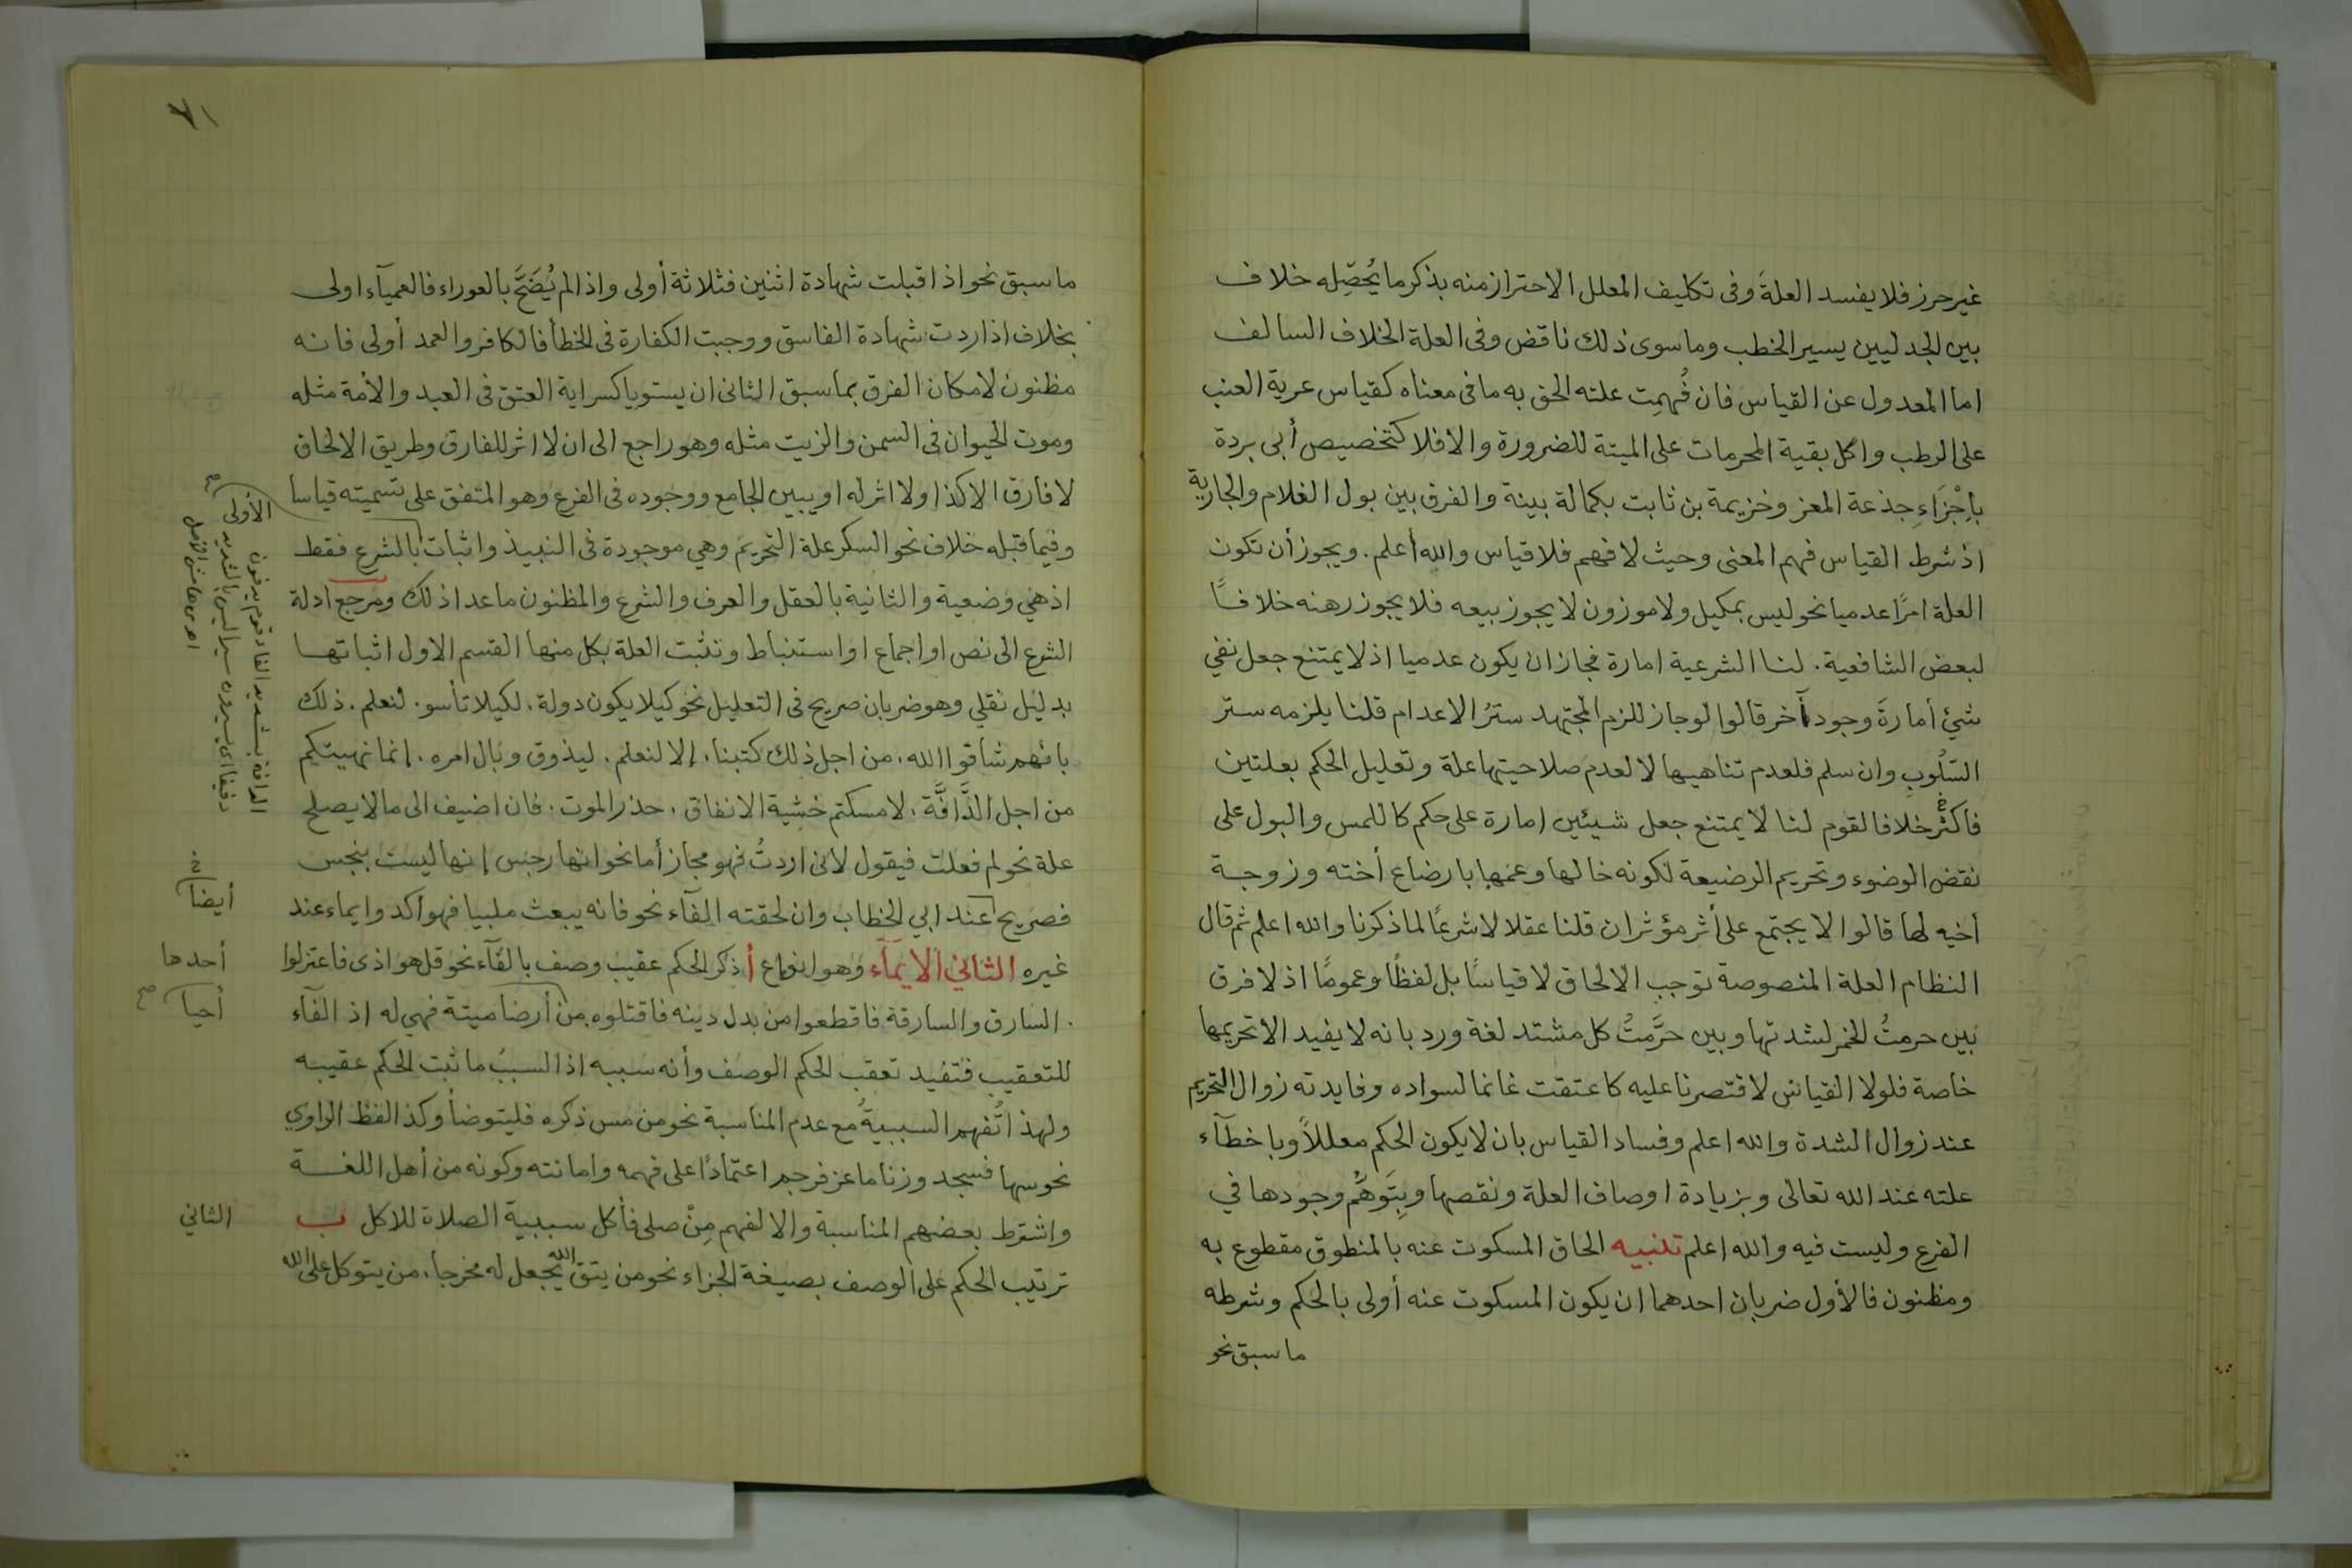 غير حرز فلا يفسد العلةَ وفى تكليف المعلل الاحتراز منه بذكر ما يُحصِّله خلاف
بين الجدليين يسير الخطب وما سوى ذلك ناقض وفى العلة الخلاف السالف
اما المعدول عن القياس فان فُهِمت علته الحق به ما فى معناه كقياس عرية العنب
على الرطب واكل بقية المحرمات على الميتة للضرورة والا فلا كتخصيص أبى بردة
بإجْزَاءِ جذعة المعز وخزيمة بن ثابت بكمالة بينة والفرق بين بول الغلام والجارية
اذ شرط القياس فهم المعنى وحيث لا فهم فلا قياس والله أعلم. ويجوز أن تكون
العلة امرًا عدميا نحو ليس بمكيل ولا موزون لا يجوز بيعه فلا يجوز رهنه خلافًا
لبعض الشافعية. لنا الشرعية امارة فجاز ان يكون عدميا اذ لا يمتنع جعل نفي
شئ أمارةَ وجود آخر قالوا لو جاز للزم المجتهد سترُ الاعدام قلنا يلزمه ستر
السّلُوبِ وان سلم فلعدم تناهيها لا لعدم صلاحيتها علة وتعليل الحكم بعلتين
فاكثر خلافا لقوم لنا لا يمتنع جعل شيئين امارة على حكم كاللمس والبول على
نقض الوضوء وتحريم الرضيعة لكونه خالها وعمها بارضاع أخته وزوجة
اخيه لها قالوا لا يجتمع على أثر مؤثران قلنا عقلا لا شرعًا لما ذكرنا والله اعلم ثم قال
النظام العلة المنصوصة توجب الالحاق لا قياسًا بل لفظًا وعمومًا اذ لا فرق
بين حرمتُ الخمر لشدتها وبين حرَّمتُ كل مشتد لغة ورد بانه لا يفيد الا تحريمها
خاصة فلولا القياس لاقتصرنا عليه كاعتقت غانما لسواده وفايدته زوال التحريم
عند زوال الشدة والله اعلم وفساد القياس بان لا يكون الحكم معللاً وباخطآء
علته عند الله تعالى وبزيادة اوصاف العلة ونقصها وبِتَوهُّم وجودها في
الفرع وليست فيه والله اعلم تنبيه الحاق المسكوت عنه بالمنطوق مقطوع به
ومظنون فالأول ضربان احدهما ان يكون المسكوت عنه أولى بالحكم وشرطه
ما سبق نحو
٧١
ما سبق نحو اذا قبلت شهادة اثنين فثلاثة أولى واذا لم يُضَحَّ بالعوراء فالعميآء اولى
بخلاف اذا ردت شهادة الفاسق ووجبت الكفارة فى الخطأ فالكافر والعمد أولى فانه
مظنون لامكان الفرق بما سبق الثانى ان يستويا كسراية العتق فى العبد والأمة مثله
وموت الحيوان فى السمن والزيت مثله وهو راجع الى ان لا اثر للفارق وطريق الالحاق
لا فارق الا كذا ولا اثر له او يبين الجامع ووجوده فى الفرع وهو المتفق على تسميته قياسا
وفيما قبله خلاف نحو السكر علة التحريم وهي موجودة فى النبيذ واثبات بالشرع فقط
اذ هي وضعية والثانية بالعقل والعرف والشرع والمظنون ما عدا ذلك ومرجع ادلة
الشرع الى نص او اجماع او استنباط وتثبت العلة بكل منها القسم الاول اثباتها
بدليل نقلي وهو ضربان صريح فى التعليل نحو كيلا يكون دولة. لكيلا تأسو. لنعلم. ذلك
بانهم شاقوا الله. من اجل ذلك كتبنا. إلا لنعلم. ليذوق وبال امره. إنما نهيتكم
من اجل الدَّافَّة. لامسكتم خشية الانفاق. حذر الموت. فان اضيف الى ما لا يصلح
علة نحو لم فعلت فيقول لانى اردتُ فهو مجاز أما نحو انها رجس إنها ليست بنجس
فصريح عند ابي الخطاب وان لحقته الفآء نحو فانه يبعث ملبيا فهو آكد وايماء عند
غيره الثاني الايمآء وهو انواع أ ذكر الحكم عقيب وصف بالفآء نحو قل هو اذى فاعتزلوا
السارق والسارقة فاقطعوا من بدل دينه فاقتلوه من أرضا ميتة فهي له اذ الفآء
للتعقيب فتفيد تعقب الحكم الوصف وأنه سببه اذ السببُ ما ثبت الحكم عقيبه
ولهذا تُفهم السببيةُ مع عدم المناسبة نحو من مس ذكره فليتوضأ وكذا لفظ الراوي
نحو سها فسجد وزنا ماعز فرجم اعتمادًا على فهمه وامانته وكونه من أهل اللغة
واشترط بعضهم المناسبة والا لفهم مِنْ صلى فأكل سببية الصلاة للاكل ب
ترتيب الحكم على الوصف بصيغة الجزاء نحو من يتق الله يجعل له مخرجا. من يتوكل على الله
الأولى
الدافة بتشديد الفاء قوم يدفون
دفيفا اى يسيرون سيرا ليس بالشديد
اهـ من هامش الأصل
أيضا
أحدها
أحيا
الثاني